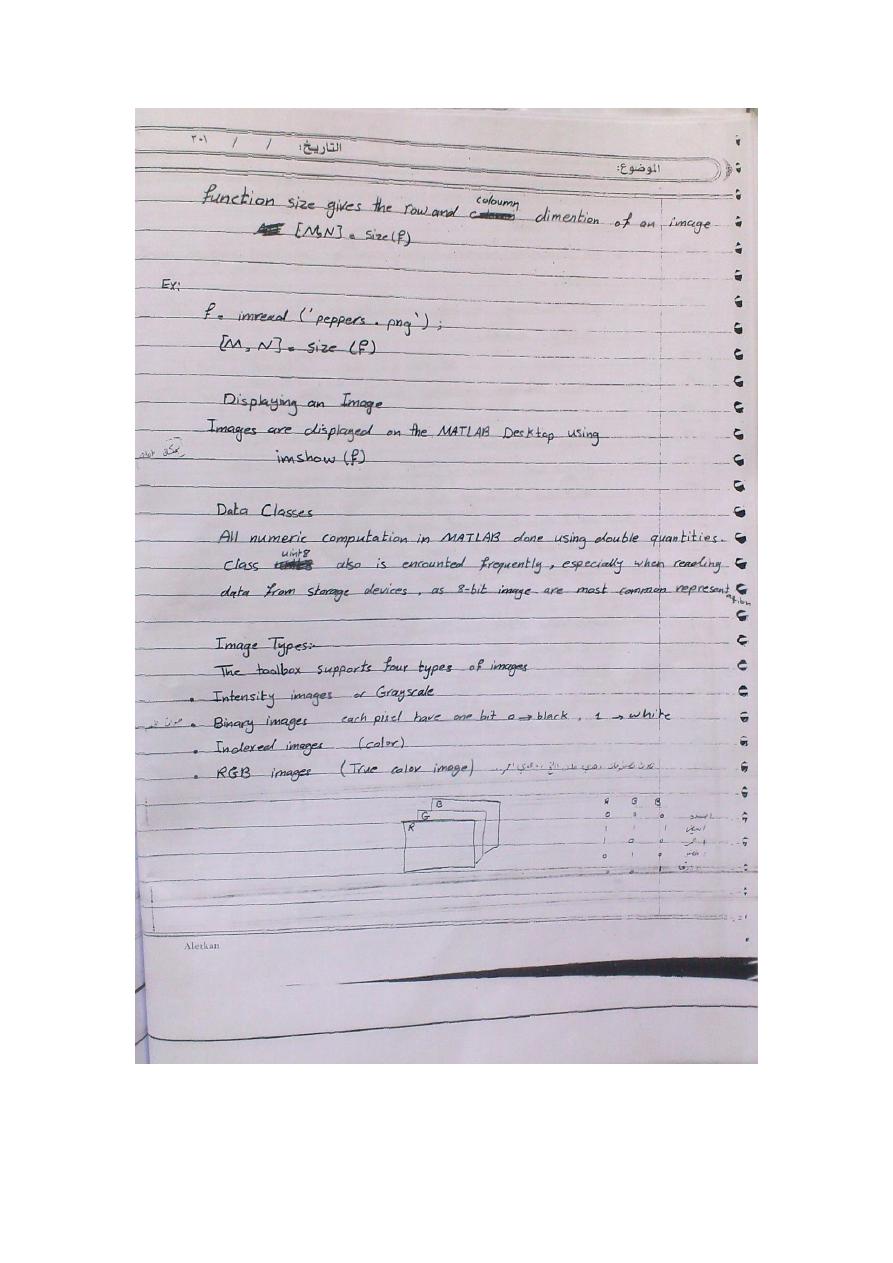 التاريخ: / / ٢٠١
الموضوع:
function size gives the row and coloumn dimention of an image
[M,N] = size(f)
Ex:
f = imread ('peppers.png');
[M, N] = size (f)
Displaying an Image
Images are displayed on the MATLAB Desktop using
imshow (f)
Data Classes
All numeric computation in MATLAB done using double quantities.
Class uint8 also is encounted frequently, especially when reading
data from storage devices, as 8-bit image are most common representation
Image Types:-
The toolbox supports four types of images
• Intensity images or Grayscale
• Binary images each pixel have one bit 0→black, 1→white
• Indexed images (color)
• RGB images (True color image)
B
G
R
R G B
0 0 0
1 1 1
1 0 0
0 1 0
0 0 1
Aletkan